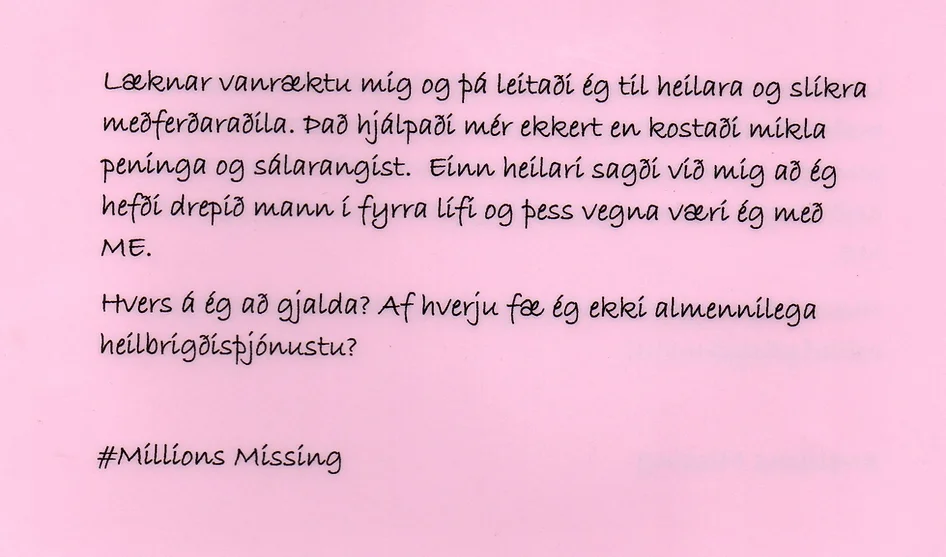 Læknar vanræktu mig og þá leitaði ég til heilara og slíkra
meðferðaraðila. Það hjálpaði mér ekkert en kostaði mikla
peninga og sálarangist. Einn heilari sagði við mig að ég
hefði drepið mann í fyrra lífi og þess vegna væri ég með
ME.
Hvers á ég að gjalda? Af hverju fæ ég ekki almennilega
heilbrigðisþjónustu?
#Millions Missing